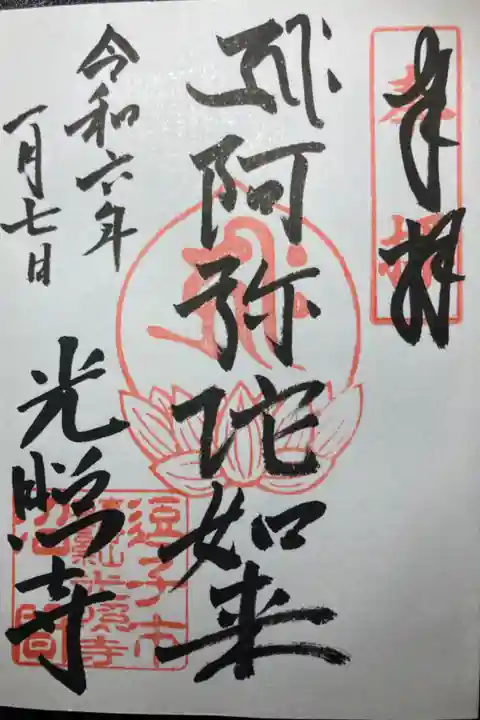 奉拝
阿弥陀如来
令和六年
一月七日
光照寺
逗子市
沼間